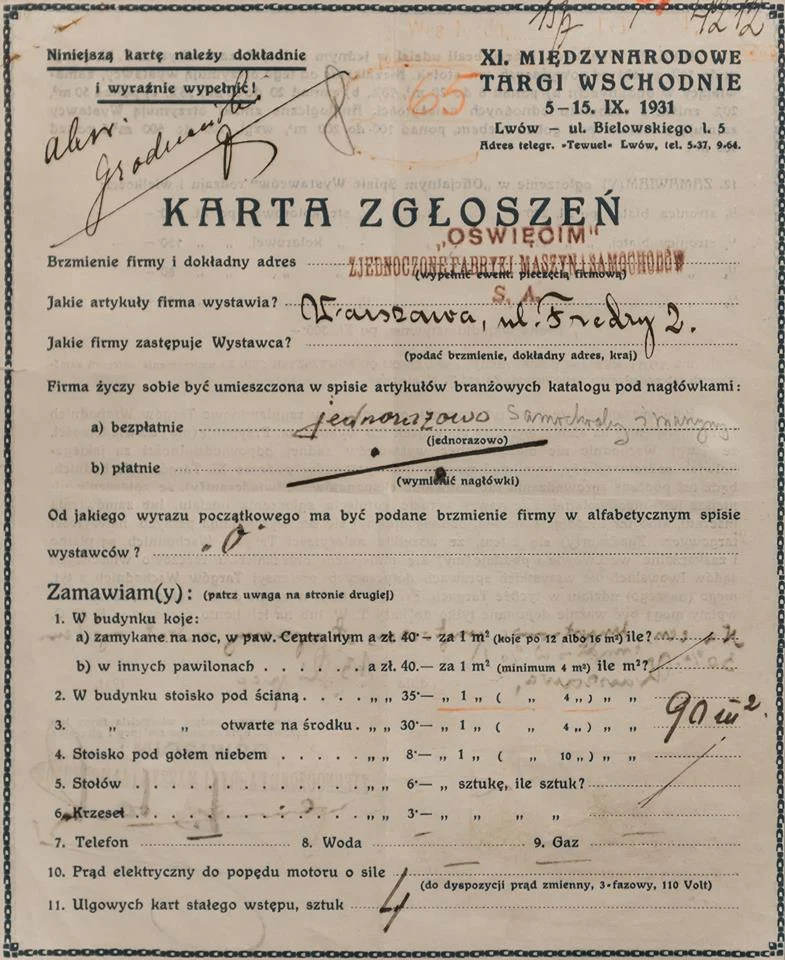 4212
Niniejszą kartę należy dokładnie
i wyraźnie wypełnić!
65
XI. MIĘDZYNARODOWE
TARGI WSCHODNIE
5–15. IX. 1931
Lwów – ul. Bielowskiego l. 5
Adres telegr. „Tewuel" Lwów, tel. 5-37, 9-64.
KARTA ZGŁOSZEŃ
„OŚWIĘCIM"
Brzmienie firmy i dokładny adres ZJEDNOCZONE FABRYKI MASZYN I SAMOCHODÓW
(wypełnić ewent. pieczęcią firmową)
S. A.
Jakie artykuły firma wystawia? Warszawa, ul. Fredry 2.
Jakie firmy zastępuje Wystawca?
(podać brzmienie, dokładny adres, kraj)
Firma życzy sobie być umieszczona w spisie artykułów branżowych katalogu pod nagłówkami:
a) bezpłatnie jednorazowo Samochody i maszyny
(jednorazowo)
b) płatnie
(wymienić nagłówki)
Od jakiego wyrazu początkowego ma być podane brzmienie firmy w alfabetycznym spisie
wystawców? „O"
Zamawiam(y): (patrz uwaga na stronie drugiej)
1. W budynku koje:
a) zamykane na noc, w paw. Centralnym a zł. 40·— za 1 m² (koje po 12 albo 16 m²) ile?
b) w innych pawilonach . . . . . . a zł. 40.— za 1 m² (minimum 4 m²) ile m²?
2. W budynku stoisko pod ścianą. . . . „ „ 35·— „ 1 „ ( „ 4 „ ) „ „
3. „ „ otwarte na środku . „ „ 30·— „ 1 „ ( „ 4 „ ) „ „ 90 m².
4. Stoisko pod gołem niebem . . . . . „ „ 8·— „ 1 „ ( „ 10 „ ) „ „
5. Stołów . . . . . . . . . . . . . „ „ 6·— „ sztukę, ile sztuk?
6. Krzeseł . . . . . . . . . . . . . „ „ 3·— „ „ „ „
7. Telefon 8. Woda 9. Gaz
10. Prąd elektryczny do popędu motoru o sile
(do dyspozycji prąd zmienny, 3-fazowy, 110 Volt)
11. Ulgowych kart stałego wstępu, sztuk 4